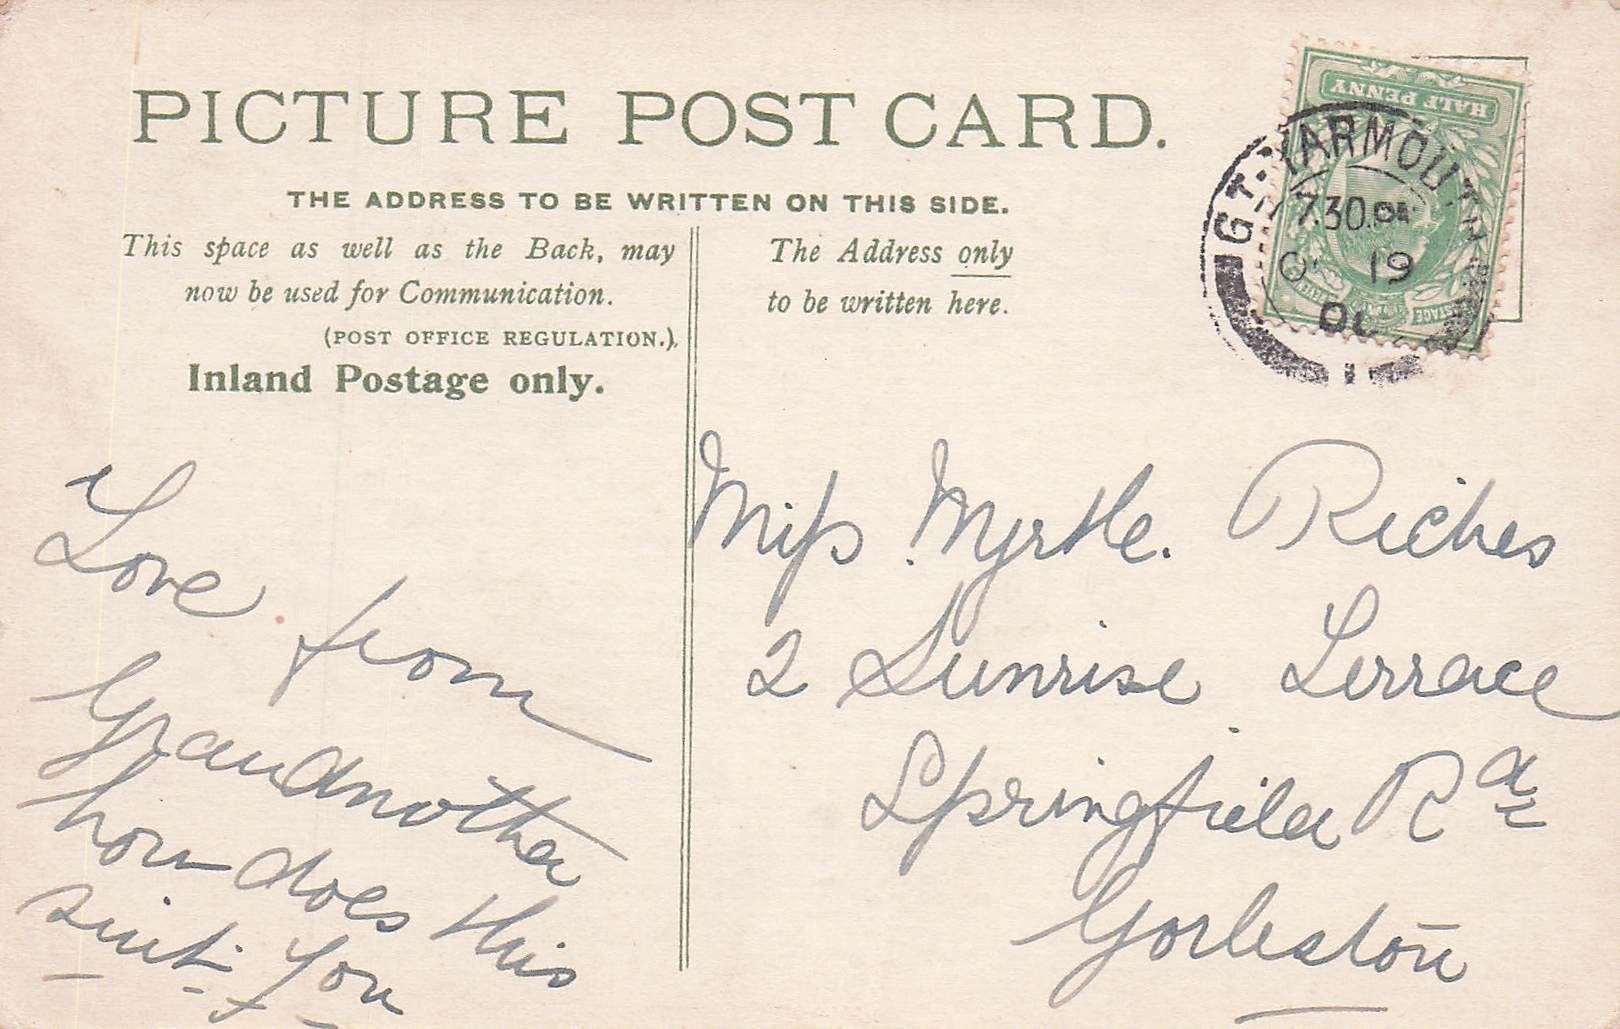 PICTURE POST CARD.
THE ADDRESS TO BE WRITTEN ON THIS SIDE.
This space as well as the Back, may
now be used for Communication.
(POST OFFICE REGULATION.)
Inland Postage only.
The Address only
to be written here.
HALF PENNY
POSTAGE
GT. YARMOUTH
7.30
19
Love from
Grandmother
how does this
suit you
Miss Myrtle. Riches
2 Sunrise Terrace
Springfield Rd
Gorleston